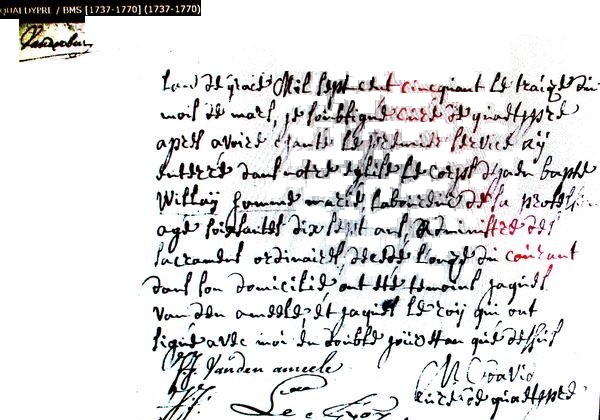 QUAEDYPRE / BMS [1737-1770] (1737-1770)
L'an de grace Mil sept cent cincquant le traize du
mois de mars, je soubsigné curé de quaedypre
apres avoire chanté le premier service ay
enterré dans notre eglise le corps de jaen bapte
Willaÿ homme marié labourdeur de sa profession
agé soixantes dix sept ans, administré des
sacraments ordinaires decedé l'onze du courant
dans son domicilié ont été temoins jaques
van den ameele et jaques le roij qui ont
signé avec moi en double jour et an que dessus
JJ. Vanden ameele
curé de quaedypre
JJ. Le Roy